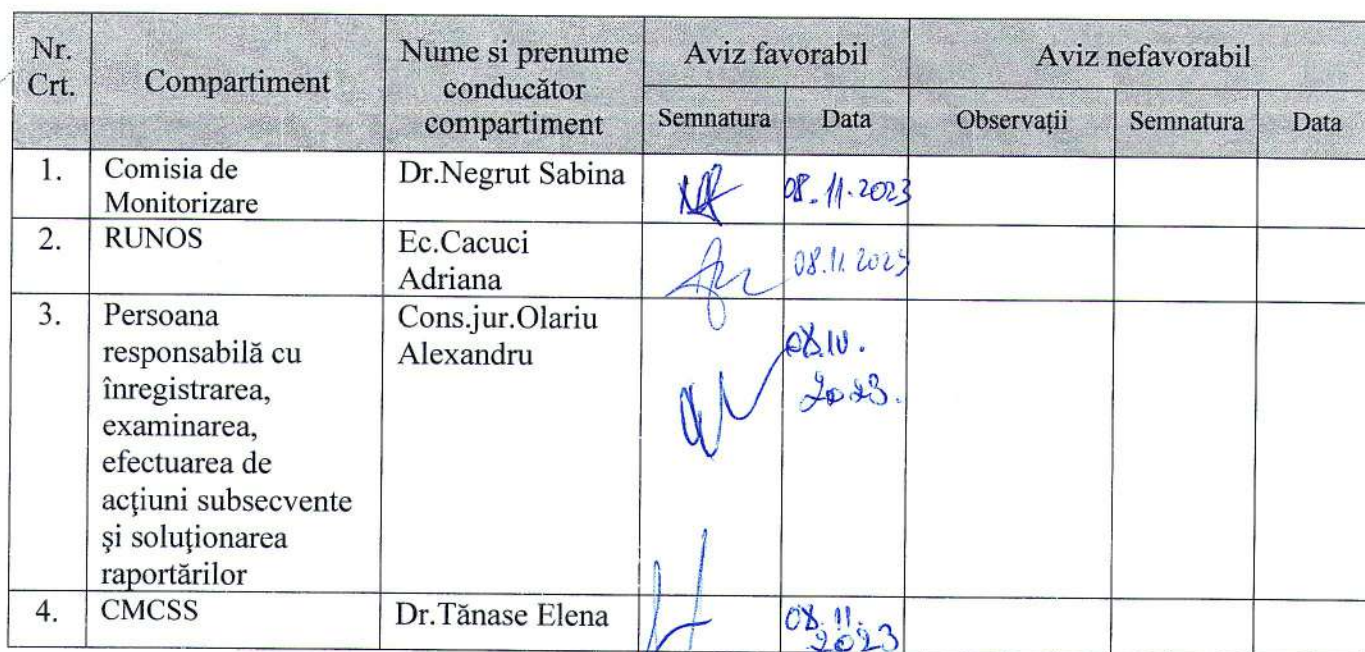 Nr. Crt.
Compartiment
Nume si prenume
conducător
compartiment
Aviz favorabil
Aviz nefavorabil
Semnatura
Data
Observații
Semnatura
Data
1.
Comisia de
Monitorizare
Dr.Negrut Sabina
08.11.2023
2.
RUNOS
Ec.Cacuci
Adriana
08.11.2023
3.
Persoana
responsabilă cu
înregistrarea,
examinarea,
efectuarea de
acţiuni subsecvente
şi soluţionarea
raportărilor
Cons.jur.Olariu
Alexandru
2023.
4.
CMCSS
Dr.Tănase Elena
08.11.
2023